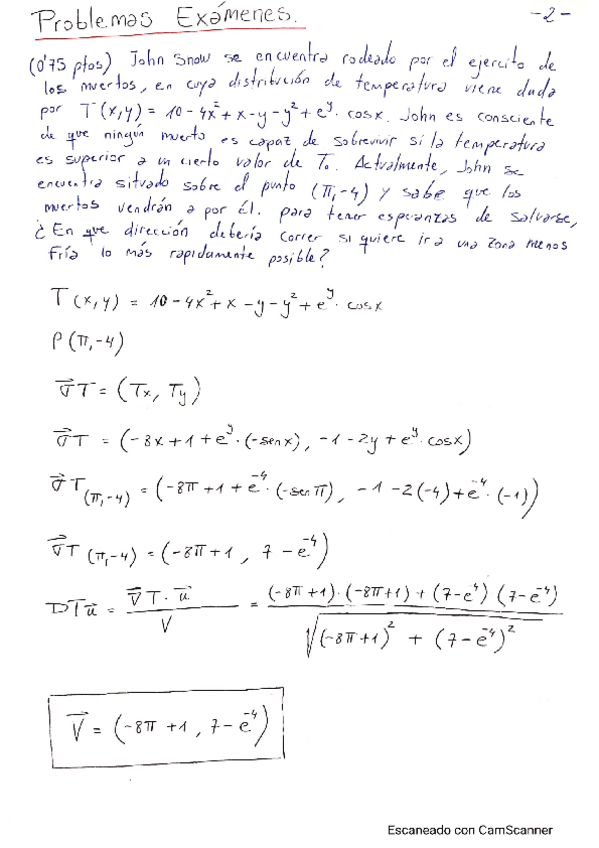 Problemas Exámenes.
-2-
(0'75 ptos) John Snow se encuentra rodeado por el ejercito de
los muertos, en cuya distribución de temperatura viene dada
por T(x,y) = 10-4x²+x-y-y²+e^y·cosx. John es consciente
de que ningún muerto es capaz de sobrevivir si la temperatura
es superior a un cierto valor de T₀. Actualmente, John se
encuentra situado sobre el punto (π,-4) y sabe que los
muertos vendrán a por Él. para tener esperanzas de salvarse,
¿En que dirección debería correr si quiere ir a una zona menos
Fría lo más rapidamente posible?
T(x,y) = 10-4x²+x-y-y²+e^y·cosx
P(π,-4)
∇⃗T = (Tx, Ty)
∇⃗T = (-8x+1+e^y·(-senx), -1-2y+e^y·cosx)
∇⃗T(π,-4) = (-8π+1+e^-4·(-senπ), -1-2(-4)+e^-4·(-1))
∇⃗T(π,-4) = (-8π+1, 7-e^-4)
DTu⃗ = ∇⃗T·u⃗ / V = (-8π+1)·(-8π+1)+(7-e^-4)(7-e^-4) / √((-8π+1)²+(7-e^-4)²)
V⃗ = (-8π+1, 7-e^-4)
Escaneado con CamScanner